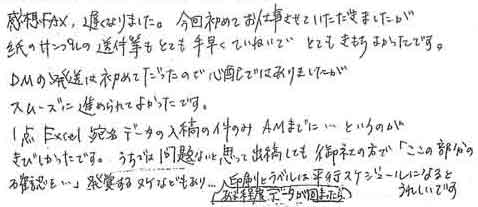 感想FAX、遅くなりました。今回初めてお仕事させていただきましたが
紙のサンプルの送付等もとても手早くていねいで とてもきもちよかったです。
DMの発送は初めてだったので心配ではありましたが
スムーズに進められてよかったです。
1点 Excel 宛名データの入稿の件のみ AMまでに… というのが
きびしかったです。うちでは問題ないと思って出稿しても御社の方で「ここの部分の
確認を…」発覚するヌケなどもあり… 印刷とラベルは平行スケジュールになると
ある程度データが固まったら うれしいです